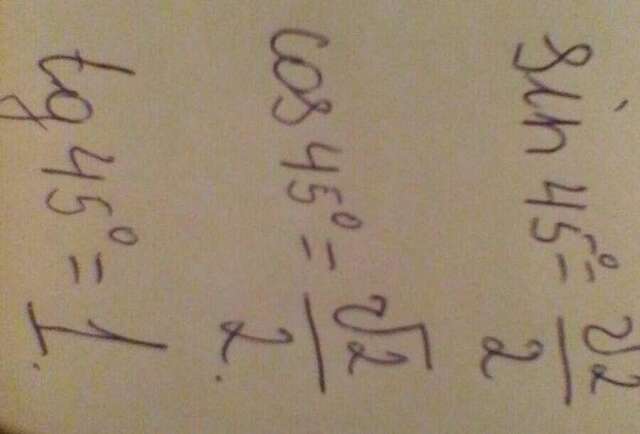 sin 45° = √2/2
cos 45° = √2/2.
tg 45° = 1.